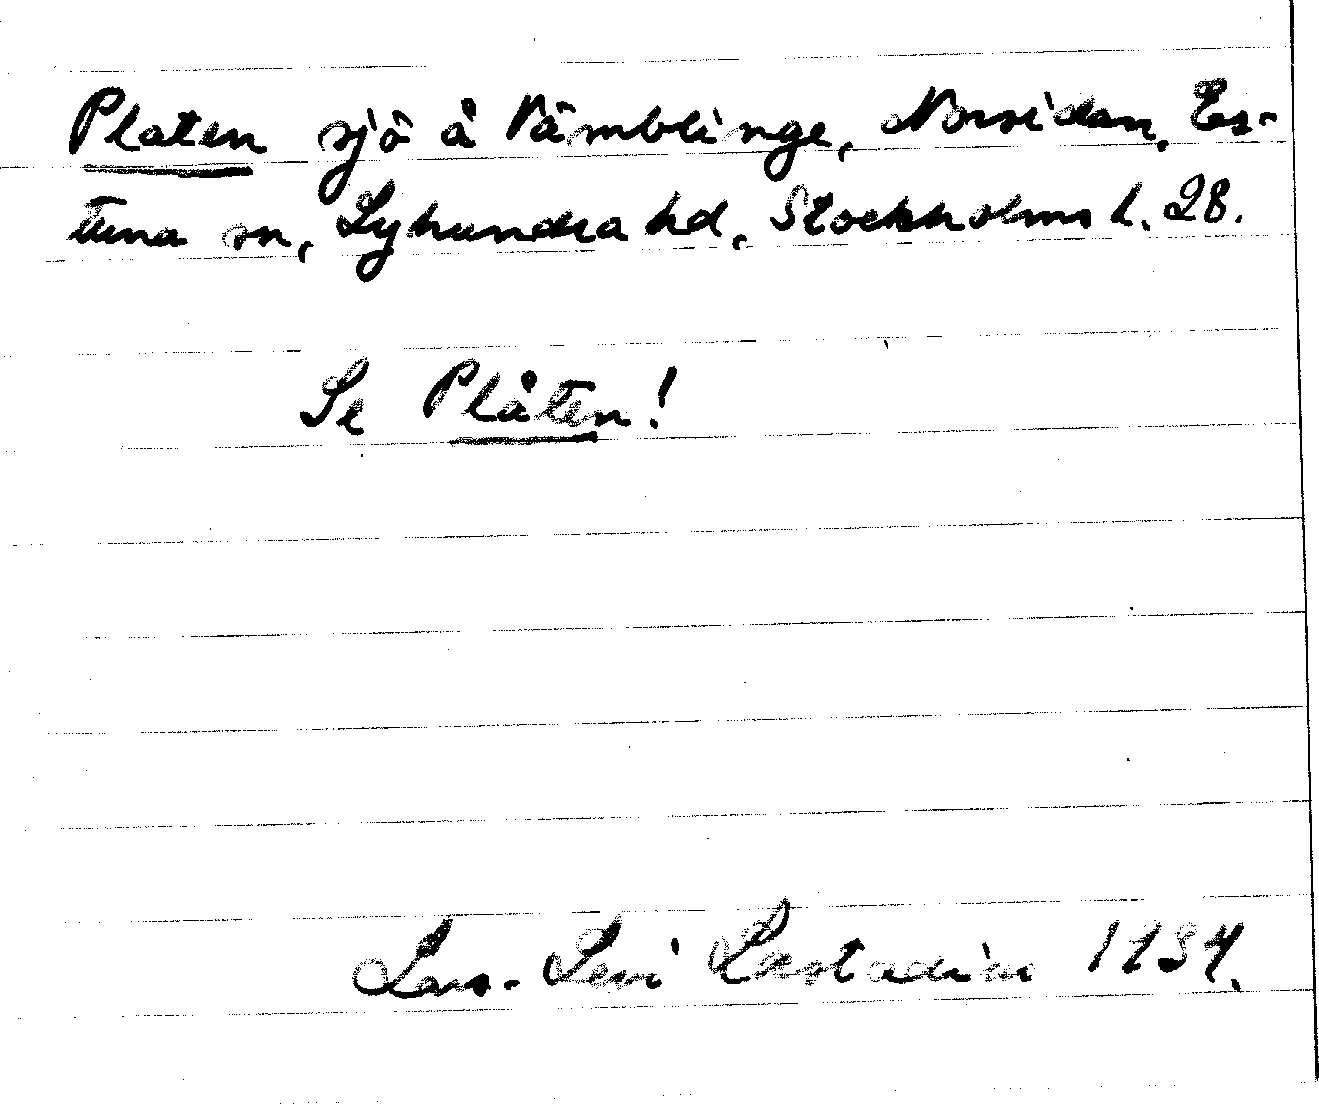 Platen sjö å Vämblinge, Norsidan, Es-
tuna sn, Lyhundra hd, Stockholms l. 28.
Se Plåten!
Lars-Levi Læstadius 1934.